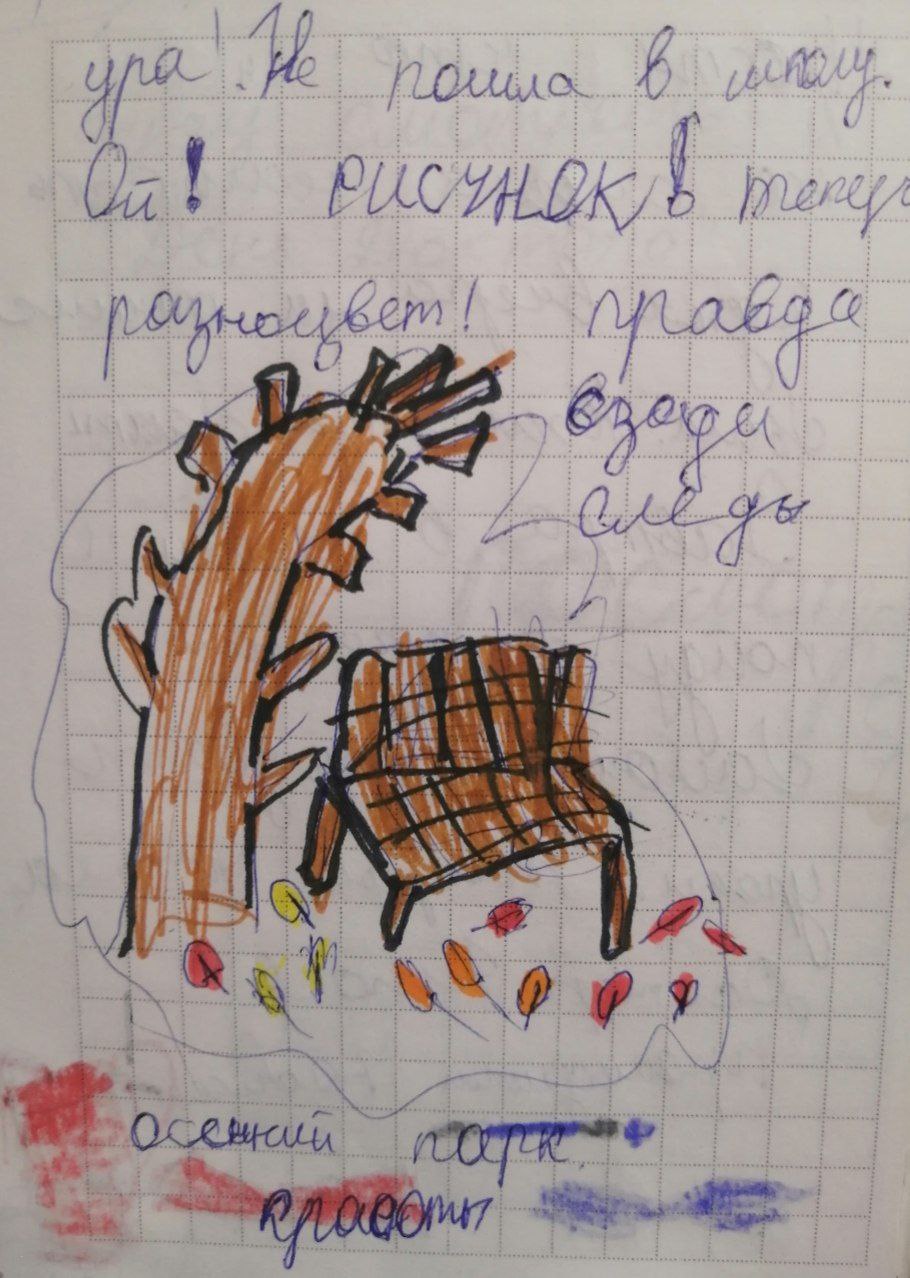 ура! Не пошла в школу.
Ой! РИСУНОК! теперь
разноцвет! правда
взади
следы
осенний парк
красоты